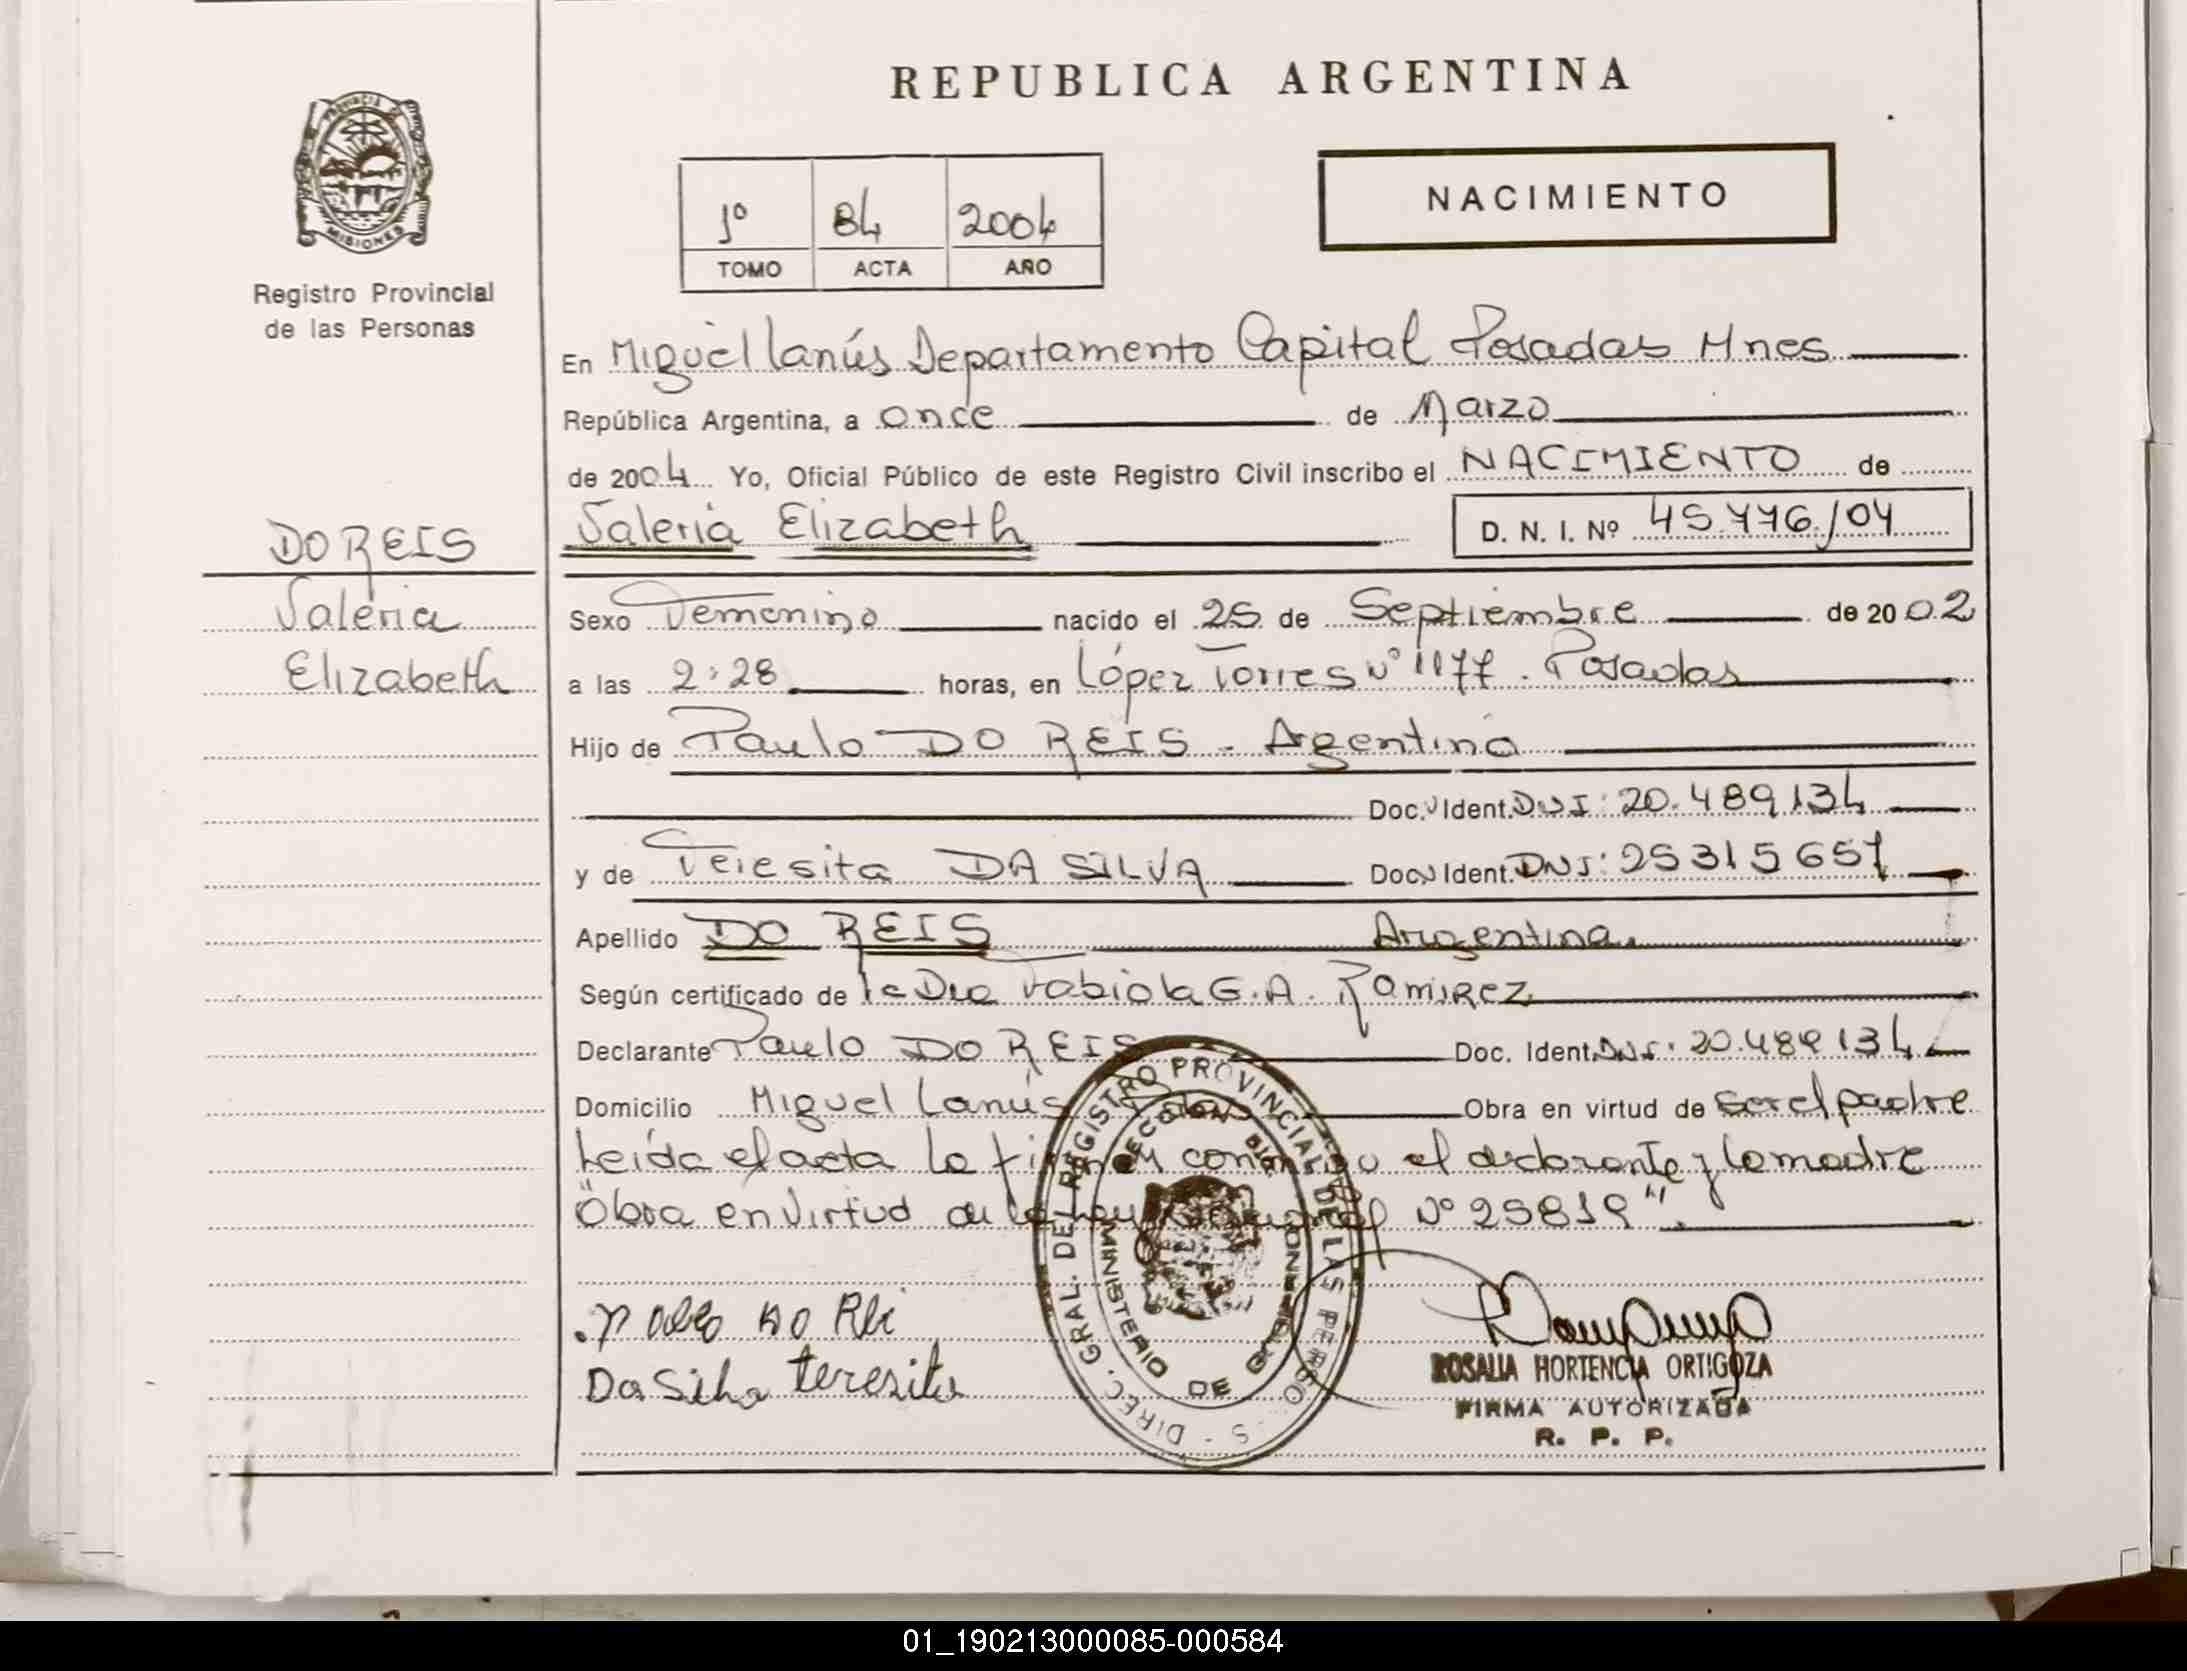 REPUBLICA ARGENTINA
PROVINCIA DE
MISIONES
Registro Provincial
de las Personas
1º 84 2004
TOMO ACTA AÑO
NACIMIENTO
En Miguel Lanús Departamento Capital Posadas Mnes
República Argentina, a once de Marzo
de 2004 Yo, Oficial Público de este Registro Civil inscribo el NACIMIENTO de
Valeria Elizabeth D. N. I. Nº 45.776/04
DO REIS
Valeria
Elizabeth
Sexo Femenino nacido el 25 de Septiembre de 2002
a las 2:28 horas, en López Torres Nº 1177. Posadas
Hijo de Paulo DO REIS - Argentina
Doc. Ident. DNI: 20.489134
y de Teresita DA SILVA Doc. Ident. DNI: 25315657
Apellido DO REIS Argentina
Según certificado de la Dra Fabiola G. A. Ramirez
Declarante Paulo DO REIS Doc. Ident. DNI: 20.489134
Domicilio Miguel Lanús Pdas Obra en virtud de ser el padre
Leída el acta la firman conmigo el declarante y la madre
"Obra en virtud de la Ley Nacional Nº 25819"
DIREC. GRAL. DEL REGISTRO PROVINCIAL DE LAS PERSONAS
MINISTERIO DE GOBIERNO
DO REi
Da Silva teresita
ROSALIA HORTENCIA ORTIGOZA
FIRMA AUTORIZADA
R. P. P.
01_190213000085-000584